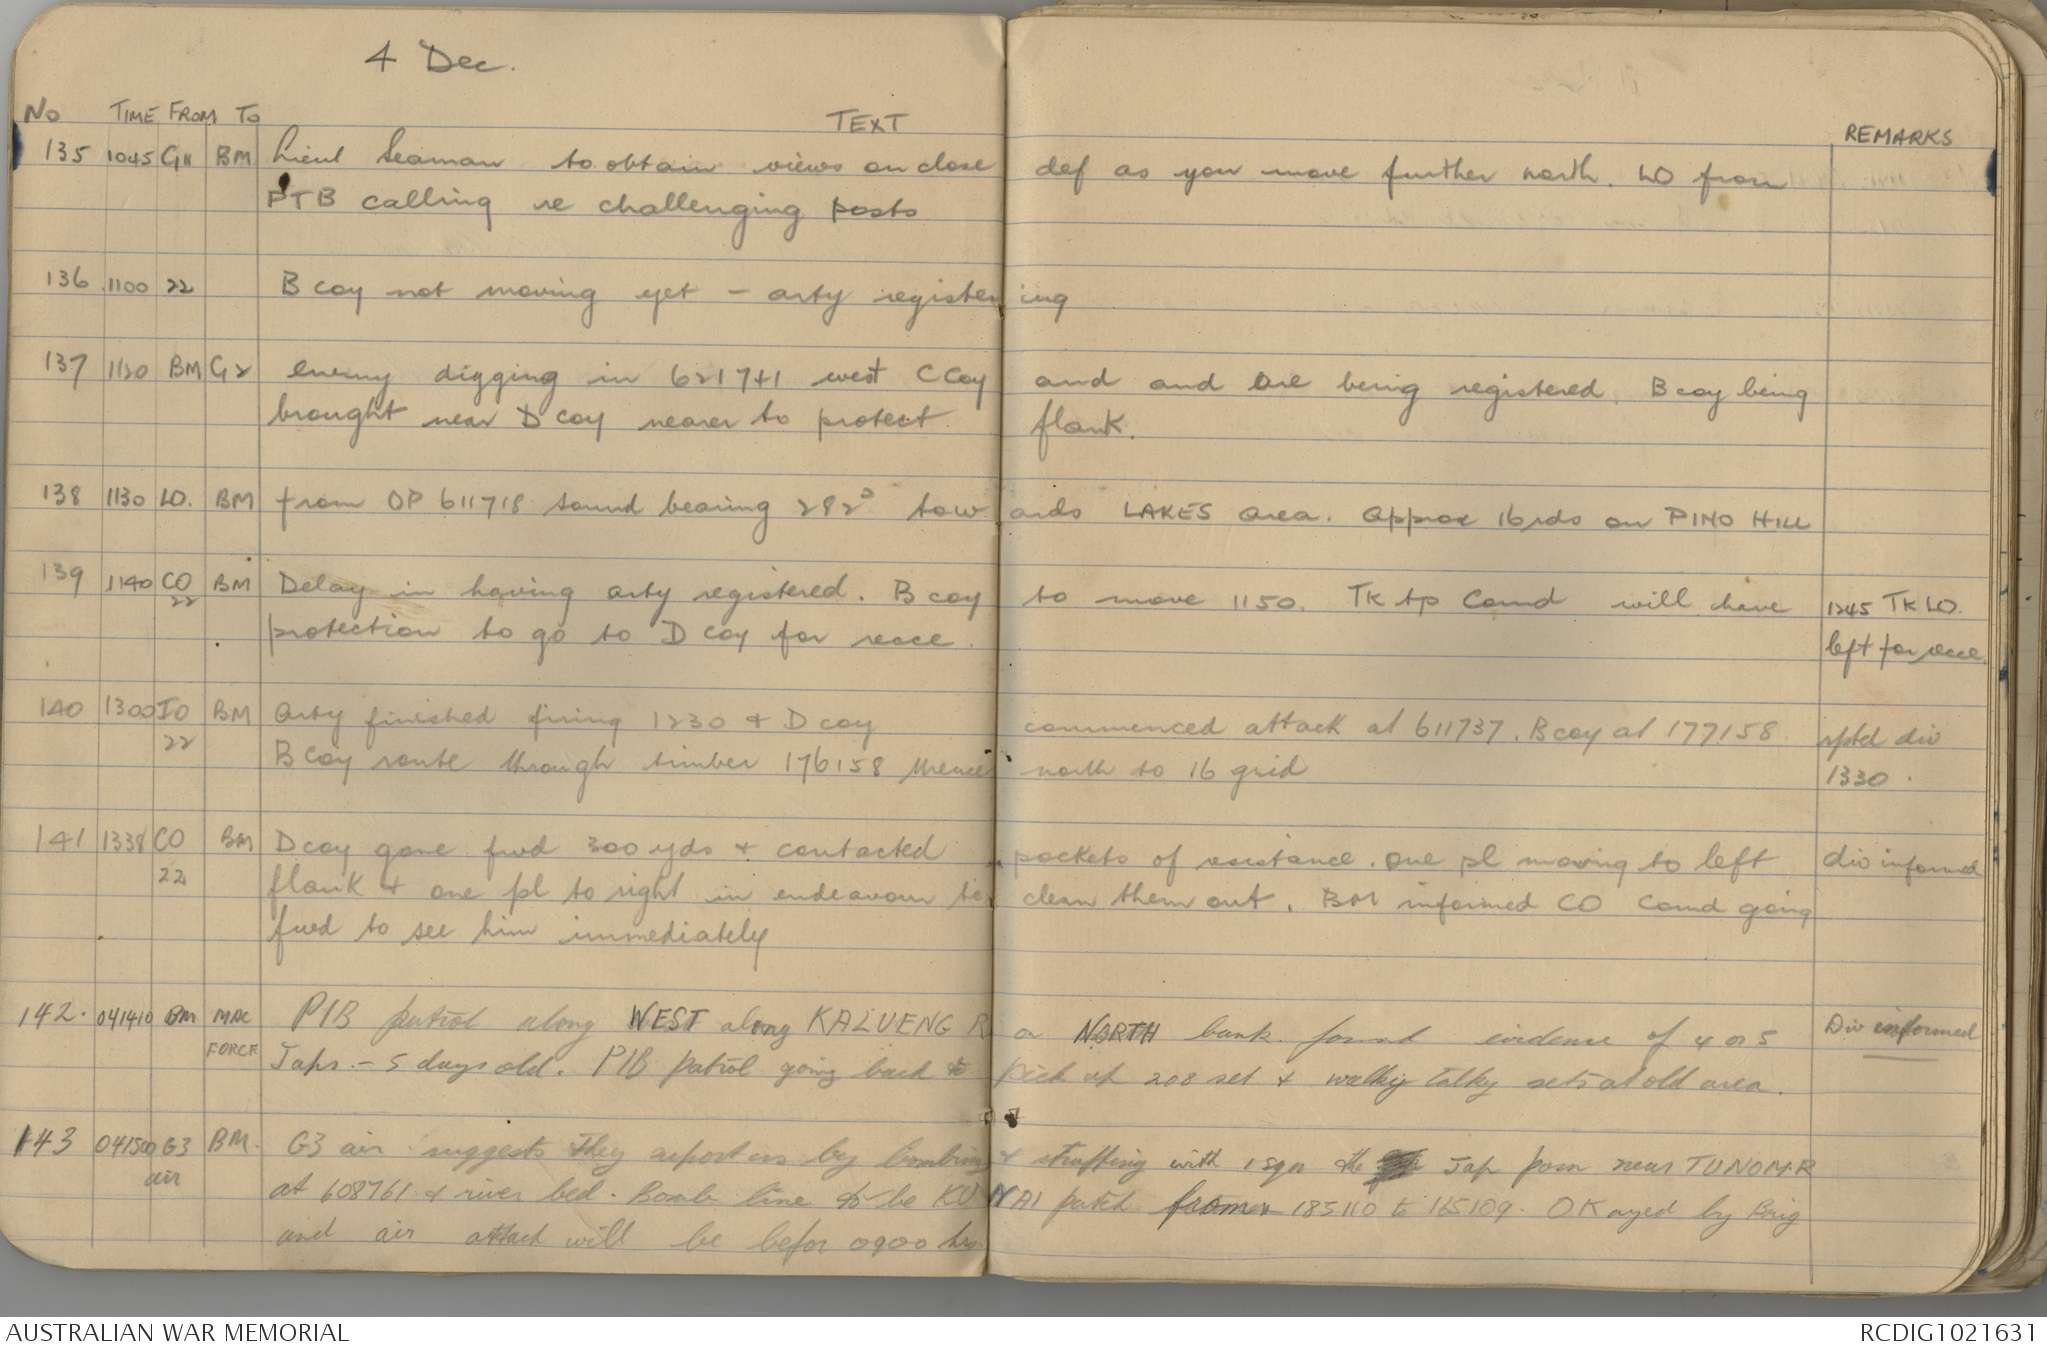 4 Dec.
No TIME FROM TO TEXT REMARKS
135 1045 BM Lieut Seaman to obtain views on close def as you move further north. LO from
PTB calling re challenging posts
136 1100 22 B coy not moving yet - arty registering
137 1120 BM G2 enemy digging in 621741 west C Coy and and are being registered. B coy being
brought near D coy nearer to protect flank.
138 1130 LO. BM from OP 611718 sound bearing 282° towards LAKES area. approx 16 rds on PINO HILL
139 1140 CO BM Delay in having arty registered. B coy to move 1150. TK tp Comd will have 1245 TK LO.
22 protection to go to D coy for recce. left for recce.
140 1300 IO BM Arty finished firing 1230 & D coy commenced attack at 611737. B coy at 177158 rptd div
22 B Coy route through timber 176158 thence north to 16 grid 1330.
141 1338 CO BM D coy gone fwd 300 yds & contacted pockets of resistance. One pl moving to left div informed
22 flank & one pl to right in endeavour to clean them out. BM informed CO Comd going
fwd to see him immediately
142. 041410 BM MAC PIB patrol along WEST along KALUENG R on NORTH bank found evidence of 4 or 5 Div informed
FORCE Japs. - 5 days old. PIB patrol going back to pick up 208 set & walky talky sets at old area.
143 041500 G3 BM. G3 air suggests they support us by bombing & straffing with 1 sqn the Jap posn near TUNOM R
air at 608761 & river bed. Bomb line to be KUNAI patch from 185110 to 165109. OKayed by Brig
and air attack will be befor 0900 hrs
AUSTRALIAN WAR MEMORIAL RCDIG1021631